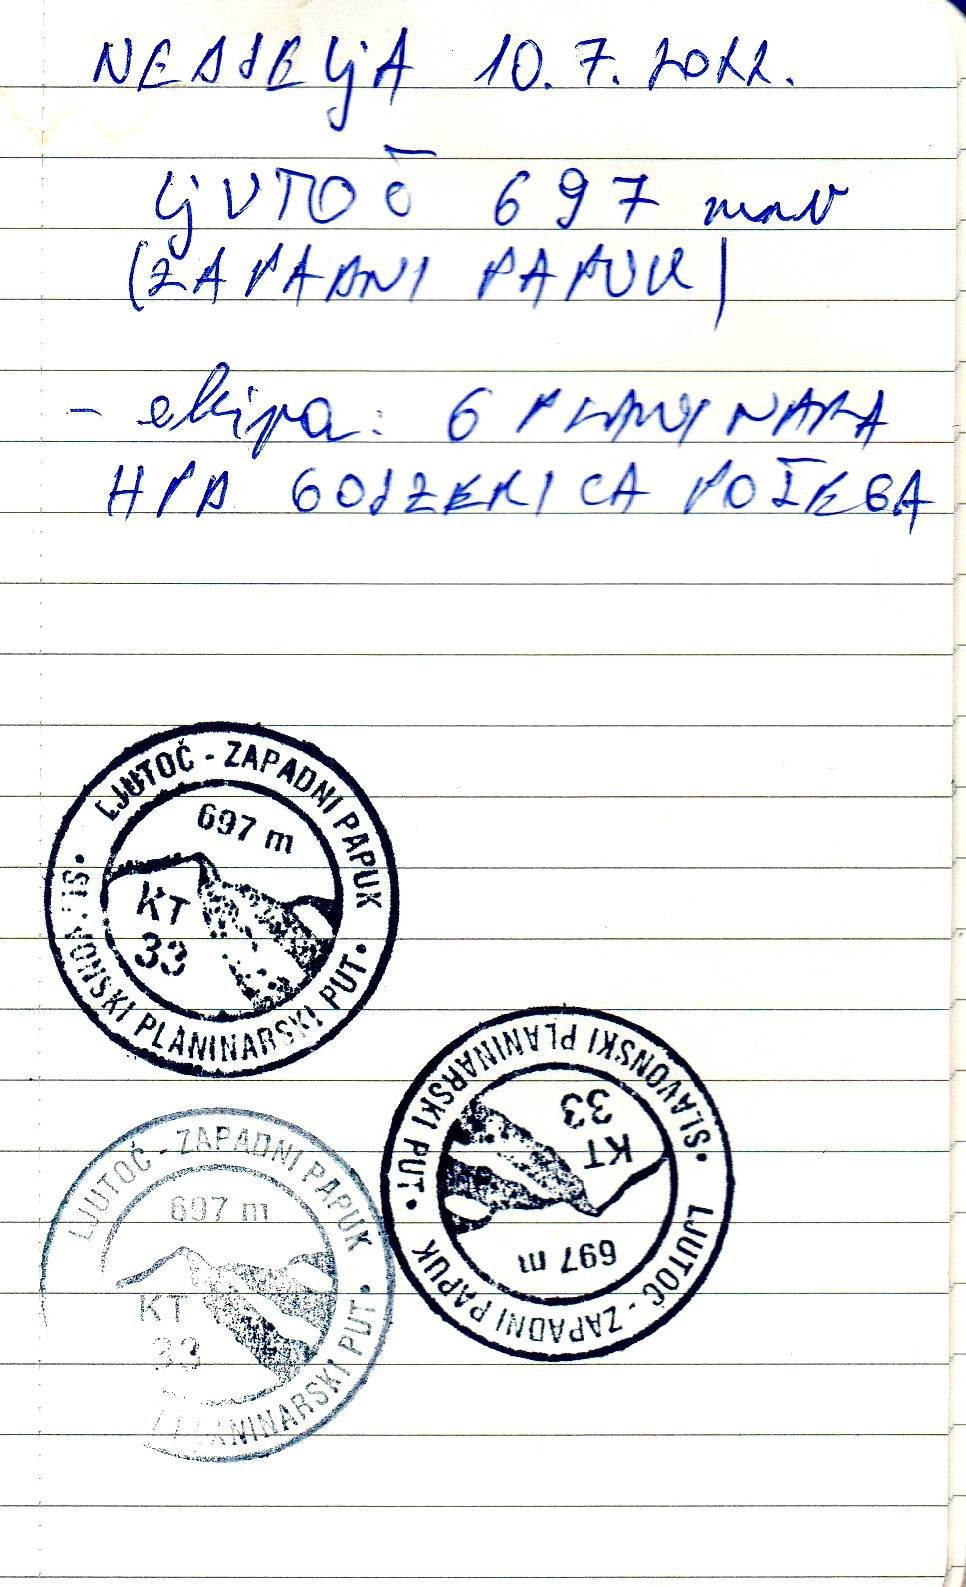 NEDJELJA 10.7.2022.
LJUTOČ 697 mnv
(ZAPADNI PAPUK)
- ekipa: 6 PLANINARA
HPD GOJZERICA POŽEGA
LJUTOČ - ZAPADNI PAPUK
697 m
KT
33
• SLAVONSKI PLANINARSKI PUT •
• SLAVONSKI PLANINARSKI PUT •
KT
33
697 m
LJUTOČ - ZAPADNI PAPUK
LJUTOČ - ZAPADNI PAPUK
697 m
KT
33
PLANINARSKI PUT •